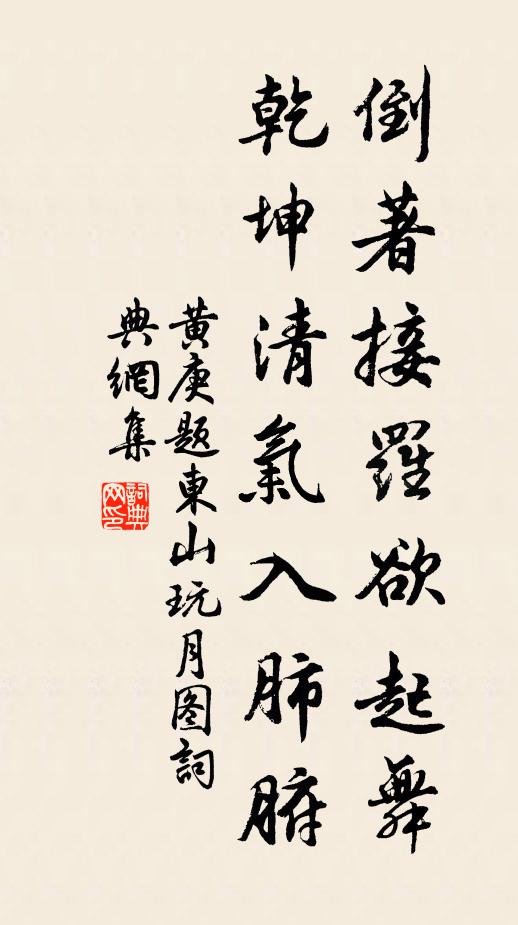 倒著接羅欲起舞
乾坤清氣入肺腑
黃庚题東山玩月图詞
典網集
詞典网印